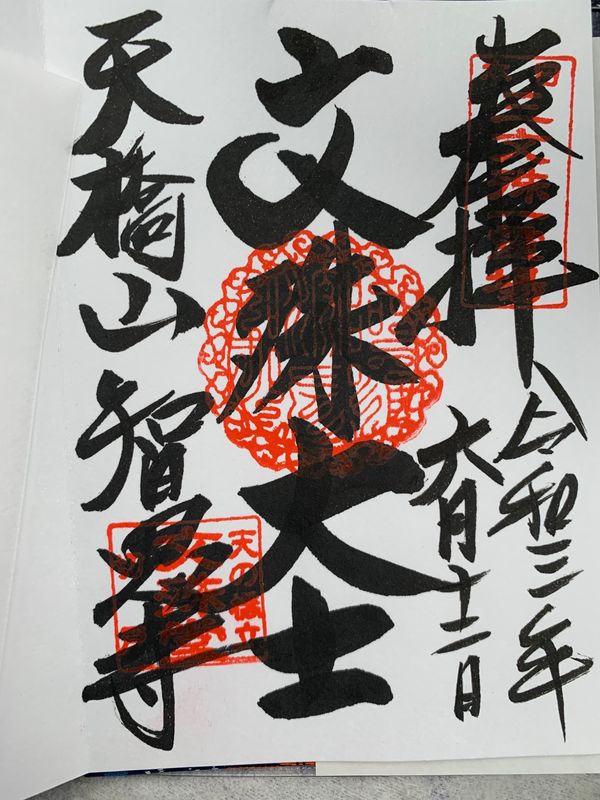 奉拝
令和三年
六月十二日
文殊大士
天橋山智恩寺
天の橋立